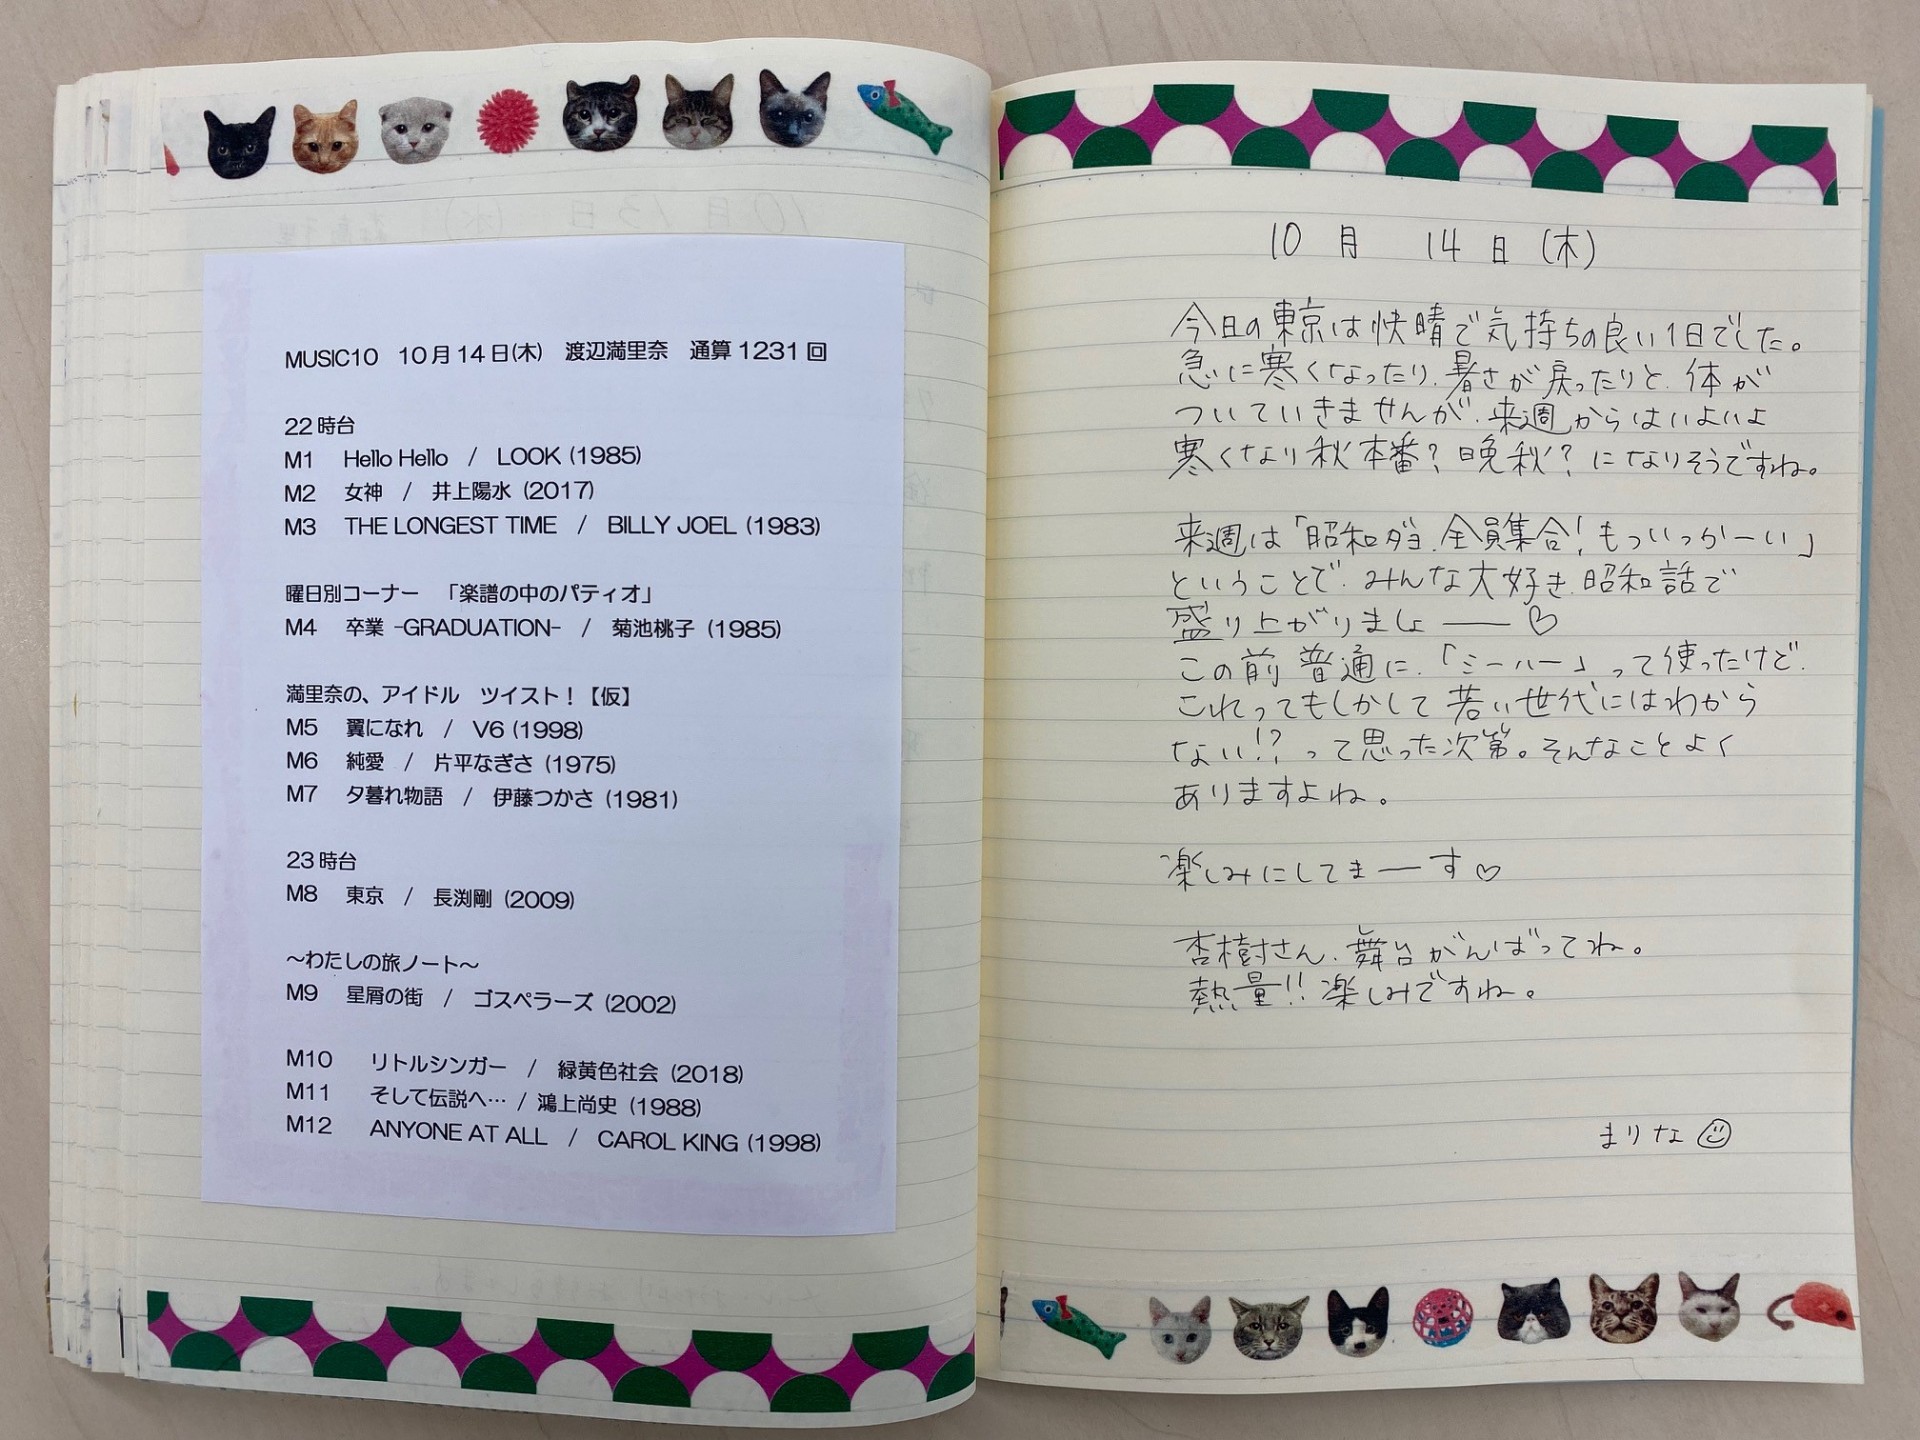 MUSIC10 10月14日(木) 渡辺満里奈 通算1231回
22時台
M1 Hello Hello / LOOK (1985)
M2 女神 / 井上陽水 (2017)
M3 THE LONGEST TIME / BILLY JOEL (1983)
曜日別コーナー 「楽譜の中のパティオ」
M4 卒業 -GRADUATION- / 菊池桃子 (1985)
満里奈の、アイドル ツイスト!【仮】
M5 翼になれ / V6 (1998)
M6 純愛 / 片平なぎさ (1975)
M7 夕暮れ物語 / 伊藤つかさ (1981)
23時台
M8 東京 / 長渕剛 (2009)
~わたしの旅ノート~
M9 星屑の街 / ゴスペラーズ (2002)
M10 リトルシンガー / 緑黄色社会 (2018)
M11 そして伝説へ… / 鴻上尚史 (1988)
M12 ANYONE AT ALL / CAROL KING (1998)
10月 14日(木)
今日の東京は快晴で気持ちの良い1日でした。
急に寒くなったり、暑さが戻ったりと、体が
ついていきませんが、来週からはいよいよ
寒くなり秋本番?晩秋?になりそうですね。
来週は「昭和ダヨ、全員集合!もういっかーい」
ということで、みんな大好き、昭和話で
盛り上がりましょ――♡
この前 普通に、「ミーハー」って使ったけど、
これってもしかして若い世代にはわから
ない!?って思った次第。そんなことよく
ありますよね。
楽しみにしてまーす♡
杏樹さん、舞台がんばってね。
熱量!!楽しみですね。
まりな☺